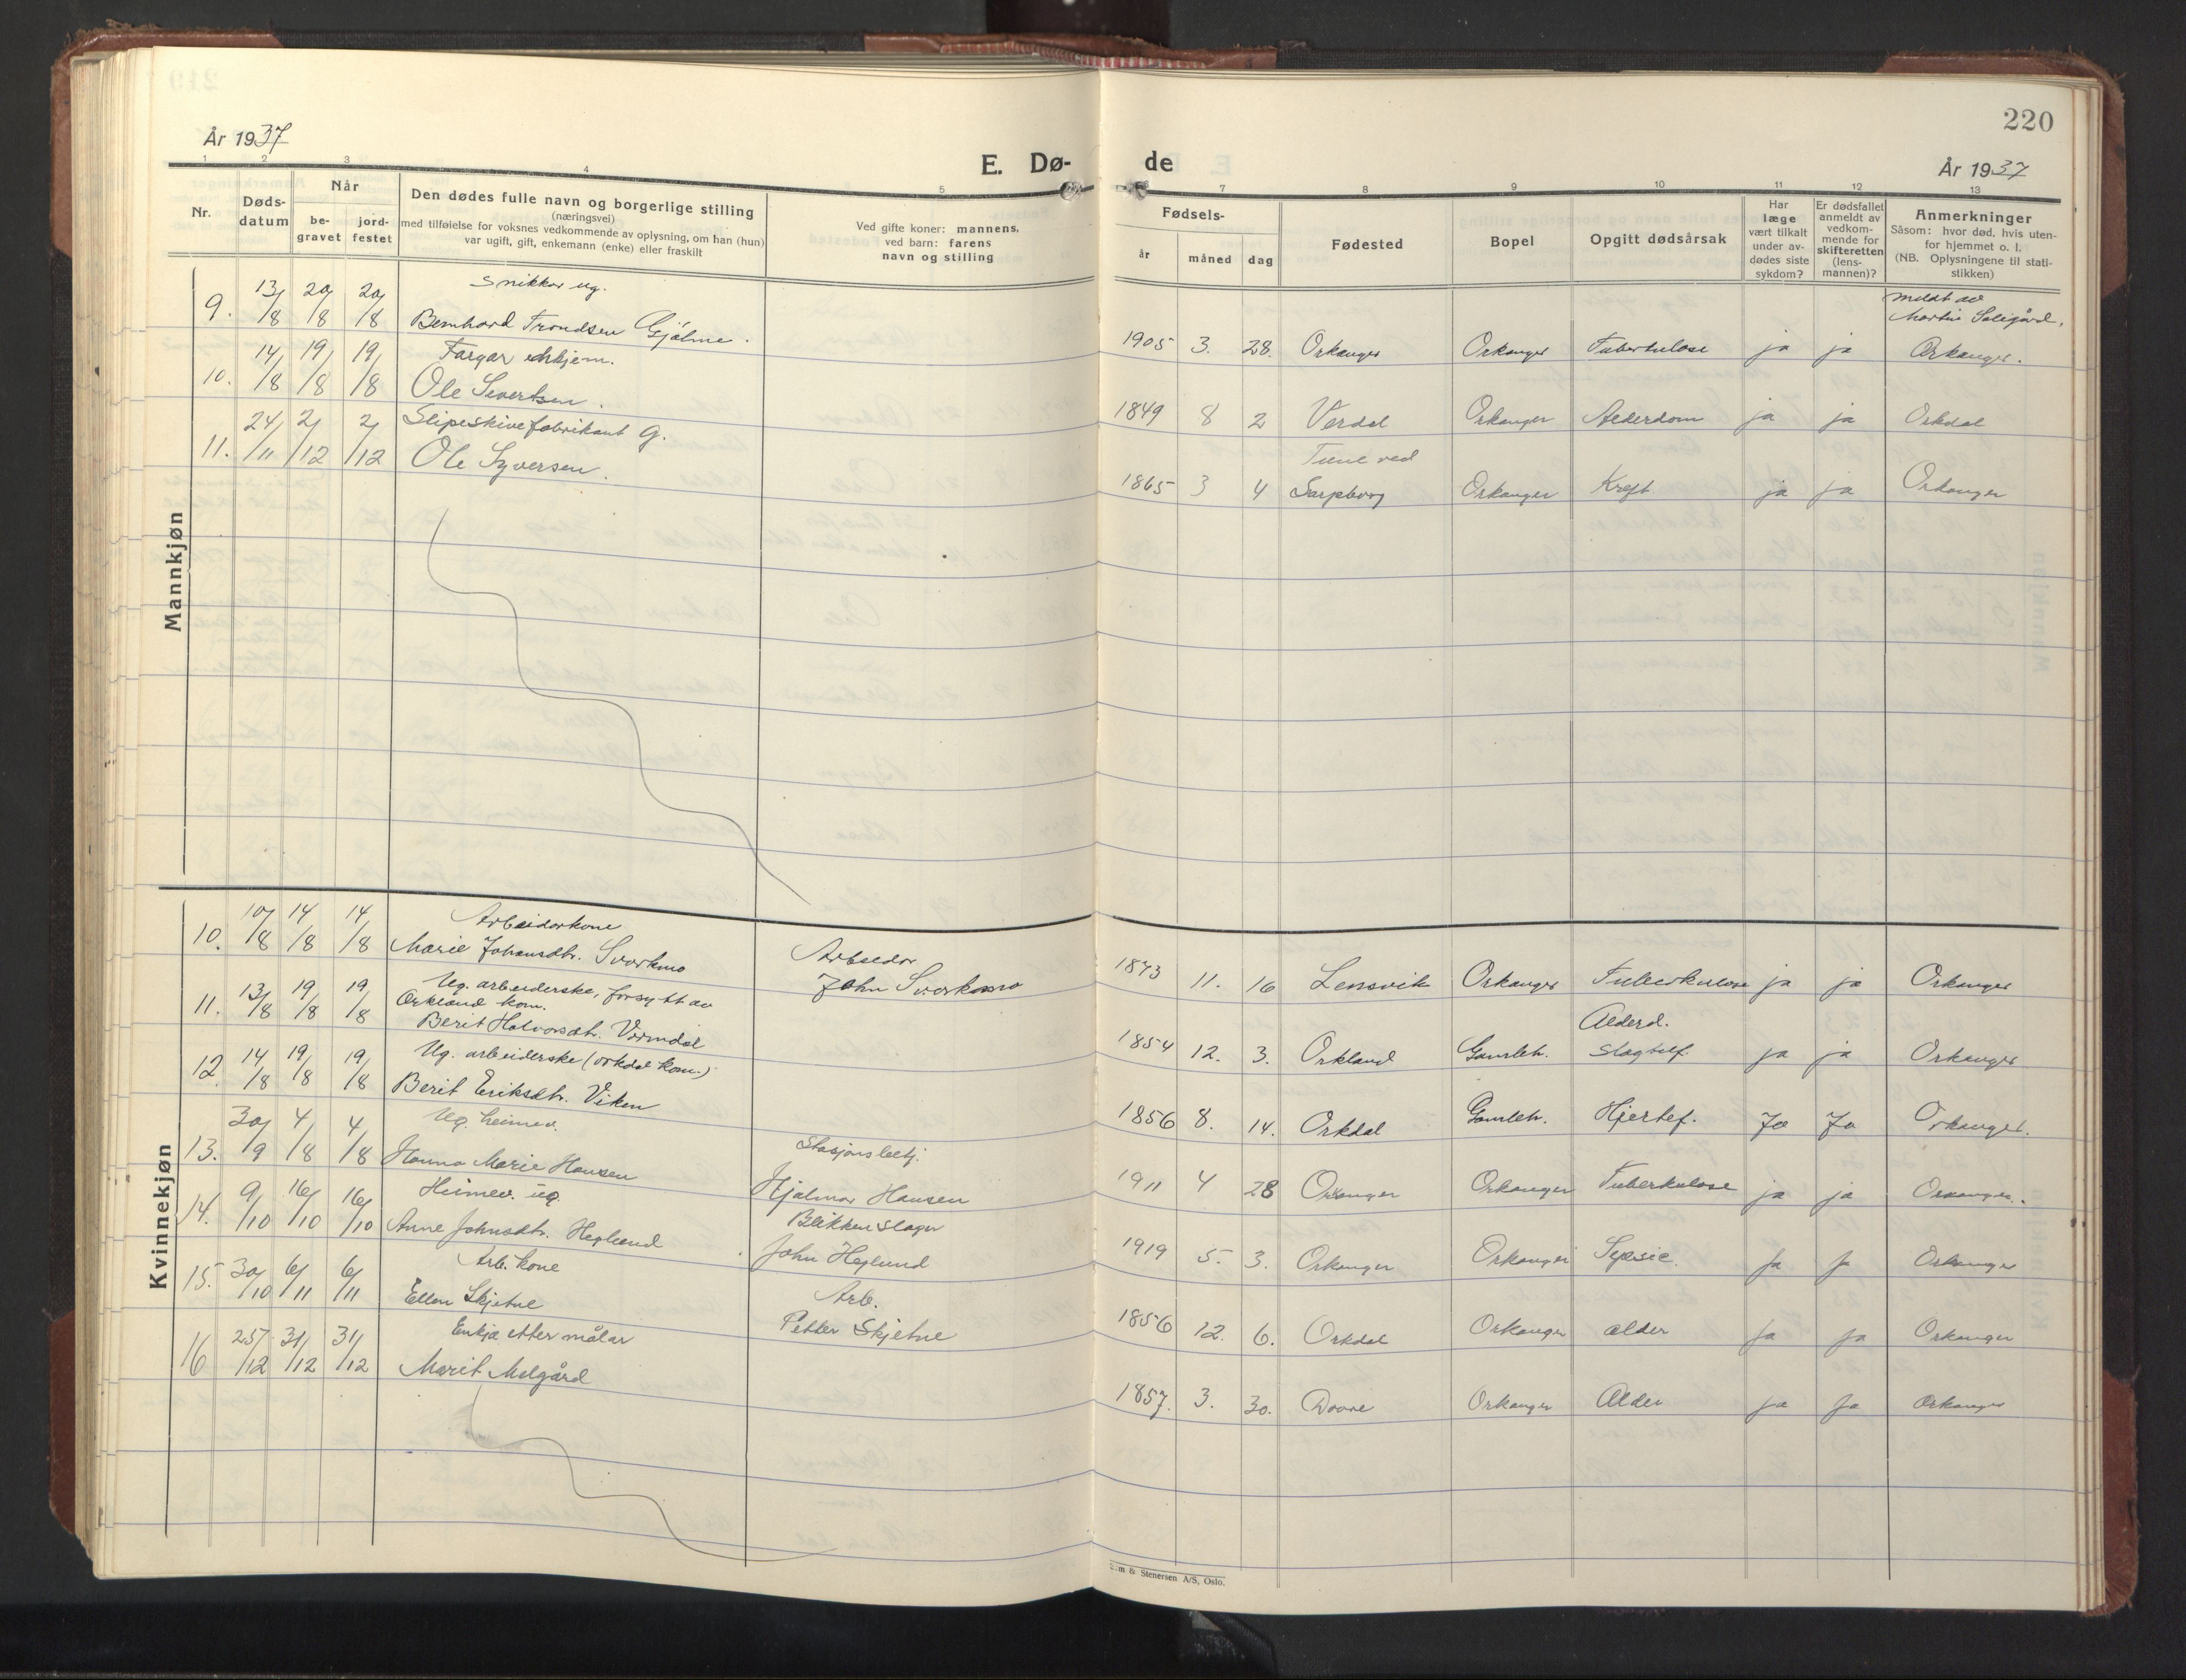 220
År 1937
E. Dø-
de
År 1937
1 2 3 4 5 6 7 8 9 10 11 12 13
Nr.
Døds-
datum
Når
be-
gravet
jord-
festet
Den dødes fulle navn og borgerlige stilling
(næringsvei)
med tilføielse for voksnes vedkommende av oplysning, om han (hun)
var ugift, gift, enkemann (enke) eller fraskilt
Ved gifte koner: mannens,
ved barn: farens
navn og stilling
Fødsels-
år måned dag
Fødested
Bopel
Opgitt dødsårsak
Har
læge
vært tilkalt
under av-
dødes siste
sykdom?
Er dødsfallet
anmeldt av
vedkom-
mende for
skifteretten
(lens-
mannen)?
Anmerkninger
Såsom: hvor død, hvis uten-
for hjemmet o. l.
(NB. Oplysningene til stati-
stikken)
Mannkjøn
Snikkar ug.
meldt av
Martin Soligård,
9. 13/8 20/8 20/8 Bernhard Trondsen Gjølme. 1905 3. 28. Orkanger Orkanger Tuberkulose ja ja Orkanger.
Fargar enkjem.
10. 14/8 19/8 19/8 Ole Sivertsen. 1849 8 2 Verdal Orkanger Alderdom ja ja Orkdal
Slipeskivefabrikant g.
Tune ved
11. 24/11 2/12 2/12 Ole Syversen. 1865 3 4 Sarpsborg Orkanger Kreft ja ja Orkanger
Kvinnekjøn
Arbeidarkone Arbeidar
10. 10/8 14/8 14/8 Marie Johansdtr. Svorkmo John Svorkmo 1873 11. 16 Lensvik Orkanger Tuberkulose ja ja Orkanger
Ug. arbeiderske, forsytt av
Orkland kom.
Alderd.
11. 13/8 19/8 19/8 Berit Halvorsdtr. Vormdal 1854 12. 3. Orkland Gamleh. slagtilf. ja ja Orkanger
Ug. arbeiderske (orkdal kom.)
12. 14/8 19/8 19/8 Berit Eriksdtr. Viken 1856 8. 14. Orkdal Gamleh. Hjertef. Ja Ja Orkanger.
Ug. heimev. Stasjonsbetj.
13. 30/9 4/8 4/8 Hanna Marie Hansen Hjalmar Hansen 1911 4 28 Orkanger Orkanger Tuberkulose ja ja Orkanger.
Heimev. ug. Blikkenslager
14. 9/10 16/10 16/10 Anne Johnsdtr. Heglund John Heglund 1919 5. 3. Orkanger Orkanger Sepsis. Ja Ja Orkanger
Arb. kone Arb.
15. 30/10 6/11 6/11 Ellen Skjetne Petter Skjetne 1856 12. 6. Orkdal Orkanger alder Ja Ja Orkanger
Enkje etter målar
16 25/12 31/12 31/12 Marit Melgård 1857. 3. 30. Orkanger Alder ja Ja Orkanger
& Stenersen A/S, Oslo.